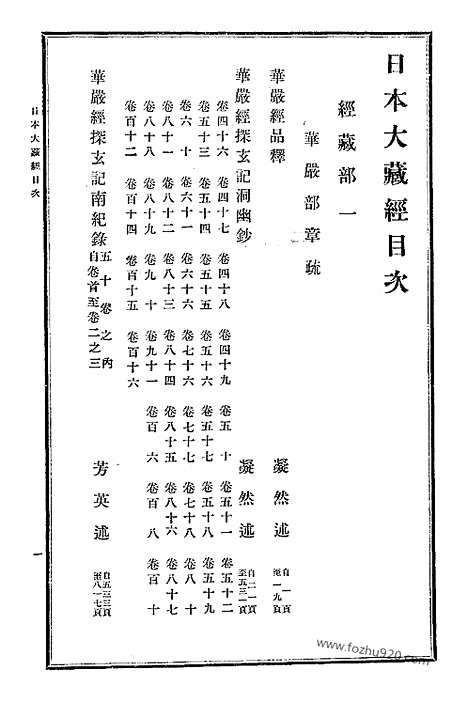 日本大藏經目次
經藏部一
華嚴部章疏
華嚴經品釋 凝然述 自一頁至一九頁
華嚴經探玄記洞幽鈔 凝然述 自二一頁至五三一頁
卷四十六 卷四十七 卷四十八 卷四十九 卷五十 卷五十一 卷五十二
卷五十三 卷五十四 卷五十五 卷五十六 卷五十七 卷五十八 卷五十九
卷六十 卷六十一 卷六十六 卷七十六 卷七十七 卷七十八 卷八十
卷八十一 卷八十二 卷八十三 卷八十四 卷八十五 卷八十六 卷八十七
卷八十八 卷八十九 卷九十 卷九十一 卷百六 卷百八 卷百十
卷百十二 卷百十四 卷百十五 卷百十六
華嚴經探玄記南紀錄 五十卷之內自卷首至卷二之三 芳英述 自五三三頁至八一七頁
日本大藏經目次
一
www.fozhu920.com